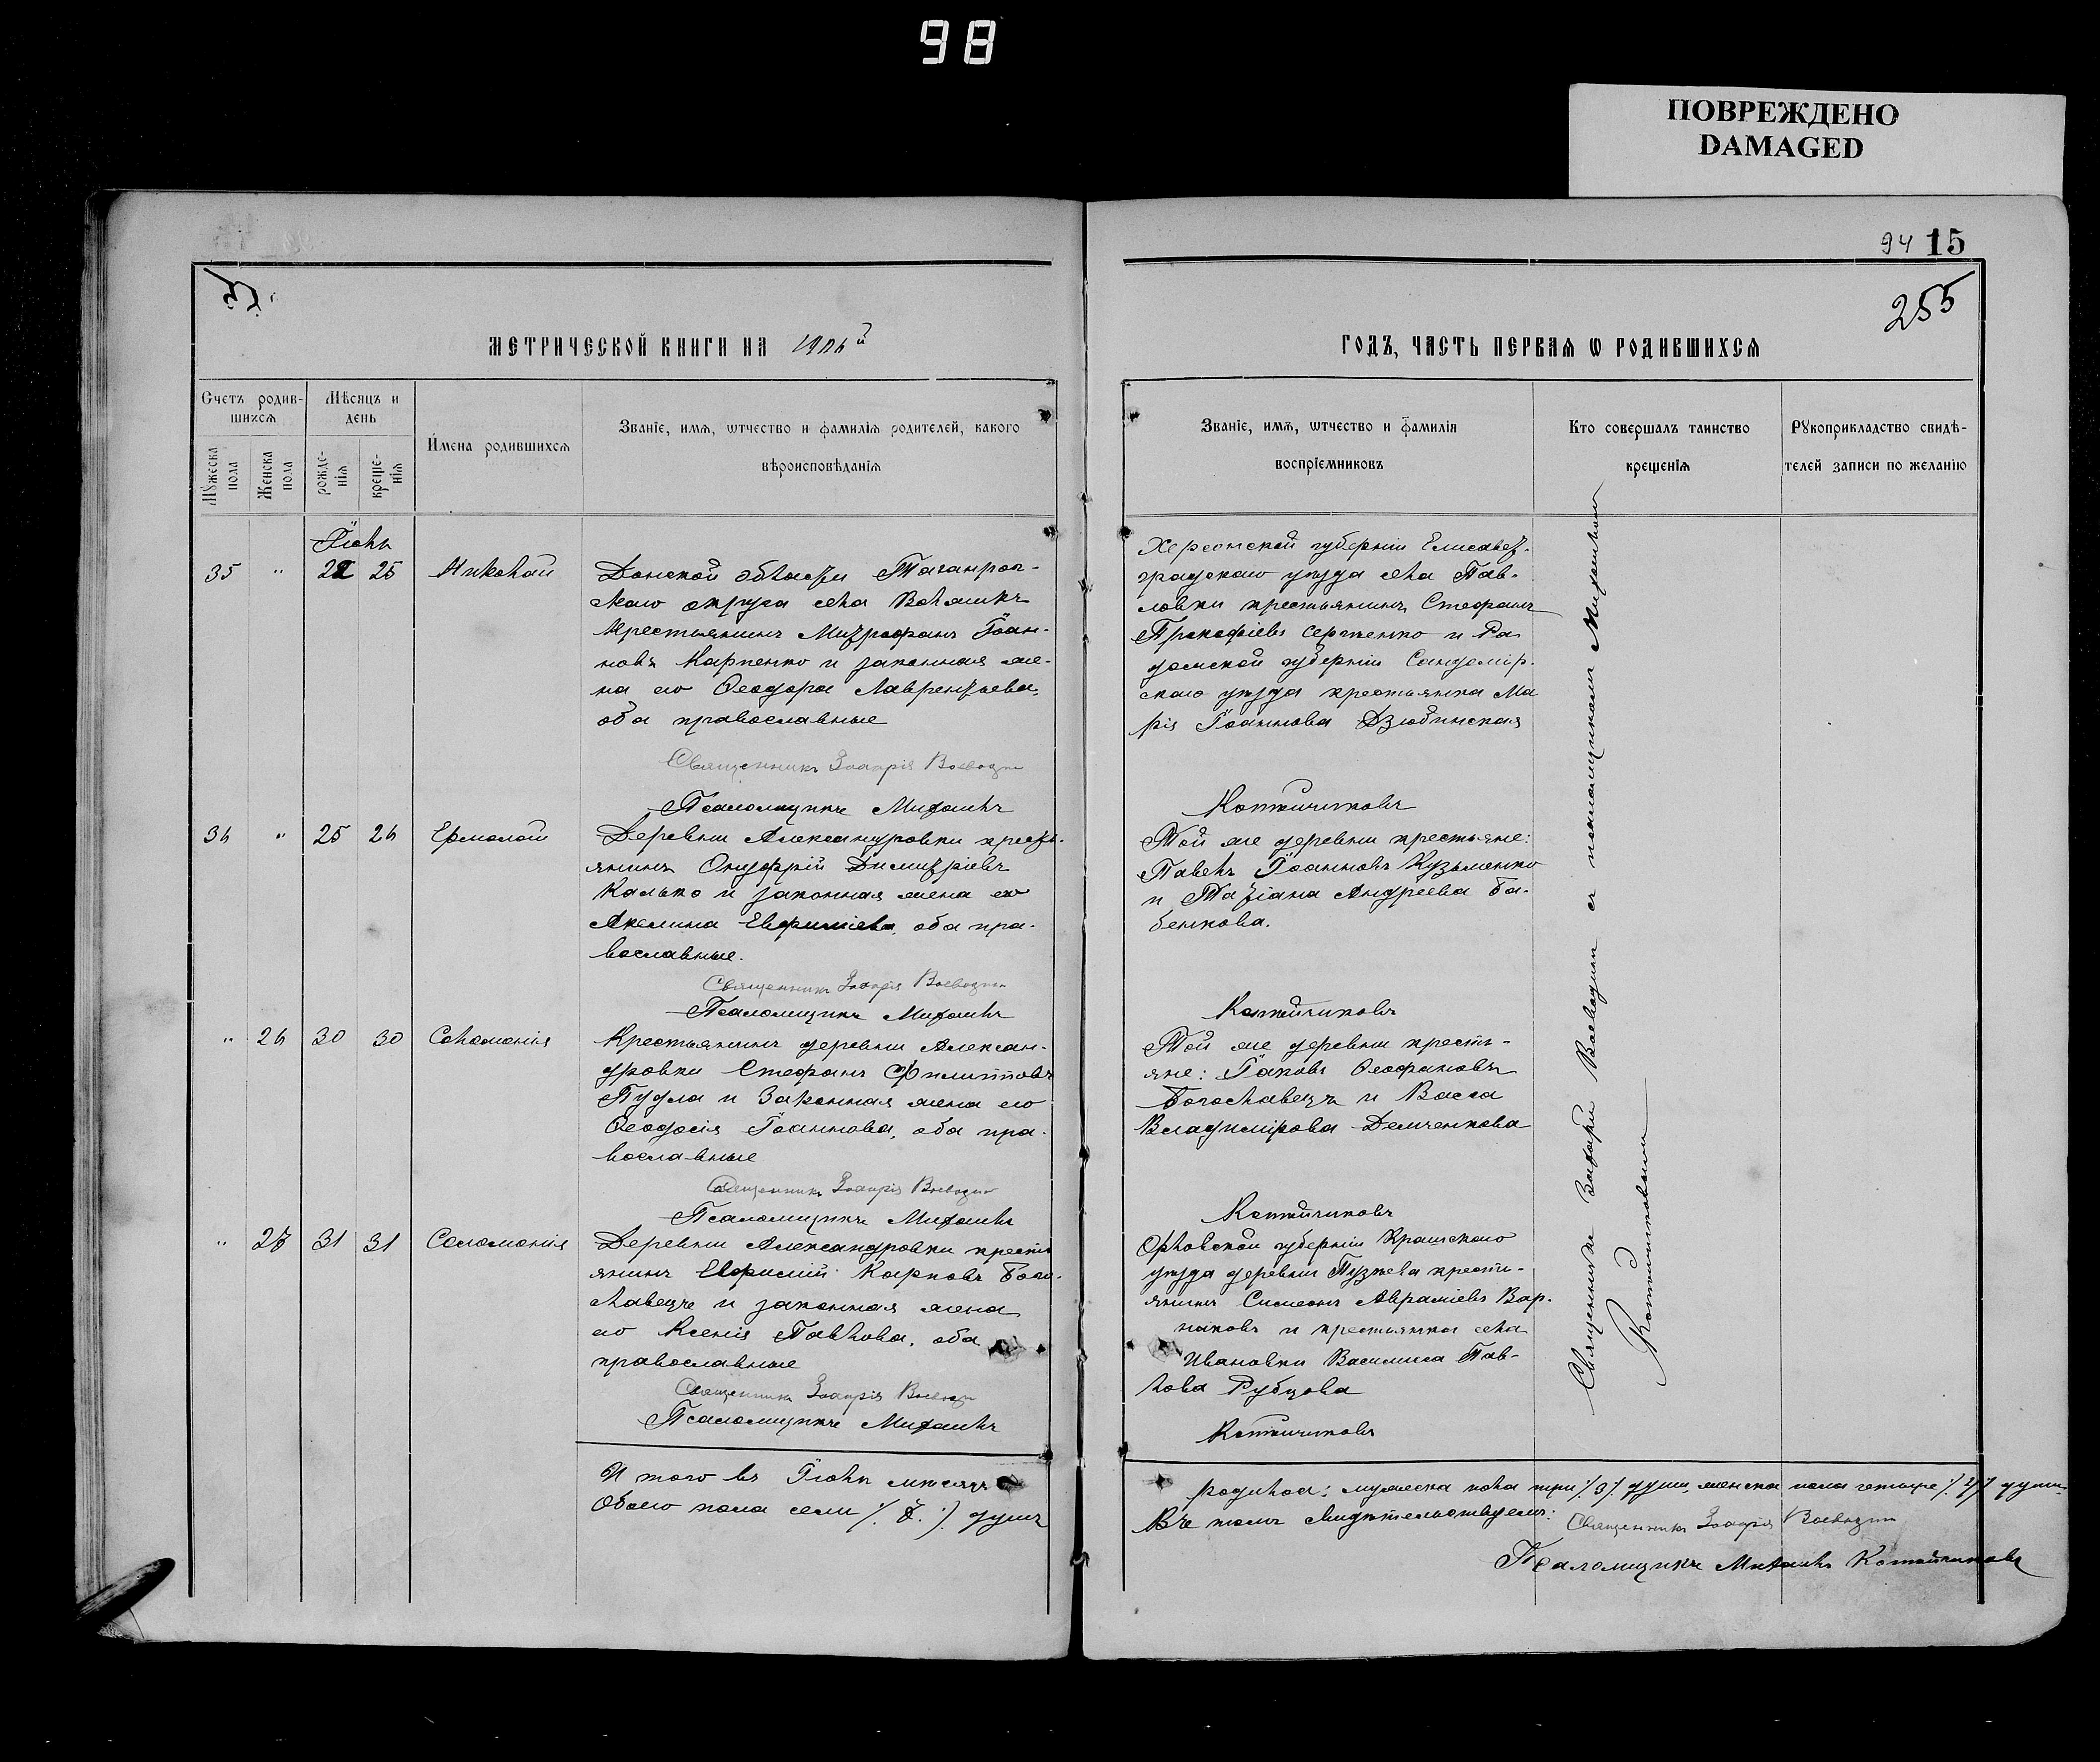 98
ПОВРЕЖДЕНО
DAMAGED
94 15
255
МЕТРИЧЕСКОЙ КНИГИ НА
ГОДЪ, ЧАСТЬ ПЕРВАЯ Ѡ РОДИВШИХСЯ
Счетъ родив-
шихся
Мѣсяцъ и
день
Мужеска
пола
Женска
пола
рожде-
нія
креще-
нія
Имена родившихся
Званіе, имя, ѡтчество и фамилія родителей, какого
вѣроисповѣданія
Званіе, имя, ѡтчество и фамилія
воспріемниковъ
Кто совершалъ таинство
крещенія
Рукоприкладство свидѣ-
телей записи по желанію
Іюль
35 " 25 Николай
Донской области Таганрог-
скаго округа села
Крестьянинъ Митрофанъ Іоан-
новъ Карпенко и законная же-
на его Ѳеодора Лаврентьева,
оба православные
Священникъ Захарія Воеводин
Псаломщикъ Михаилъ
Херсонской губерніи Елисавет-
градскаго уѣзда села Пав-
ловки крестьянинъ Стефанъ
Прокофіевъ Серженко и Ра
домской губерніи Сандомір-
скаго уѣзда крестьянка Ма
рія Іоаннова Дзюбинская
36 " 25 26 Ермолай
Деревни Александровки кресть-
янинъ Онуфрій Димитріевъ
Калько и законная жена его
Акелина Евфиміева, оба пра-
вославные.
Священникъ Захарія Воеводин
Псаломщикъ Михаилъ
Той же деревни крестьяне:
Павелъ Іоанновъ Кузьменко
и Татіана Андреева Ба-
бенкова.
" 26 30 30 Соломонія
Крестьянинъ деревни Алексан-
дровки Стефанъ Филипповъ
Пудла и Законная жена его
Ѳеодосія Іоаннова, оба пра-
вославные
Священникъ Захарія Воеводин
Псаломщикъ Михаилъ
Той же деревни кресть-
яне: Іаковъ Ѳеофановъ
Богославецъ и Васса
Владимірова Демченкова
" 31 31 Соломонія
Деревни Александровки кресть
янинъ Евфимій Карповъ Бого-
славецъ и законная жена
его Ксенія Павлова, оба
православные
Священникъ Захарія
Псаломщикъ Михаилъ
Орловской губерніи
уѣзда деревни крести-
янинъ Симеонъ Авраміевъ Вар-
наковъ и крестьянка села
Ивановки Василиса Пав-
лова Рубцова
Священникъ Захарія Воеводин съ псаломщикомъ Михаиломъ
И того въ Іюлѣ мѣсяцѣ
Обоего пола семь душъ
родилось: мужеска пола три /.3/. души, женска пола четыре /.4/. души
Въ томъ свидѣтельствуемъ:
Священникъ Захарія Воеводин
Псаломщикъ Михаилъ